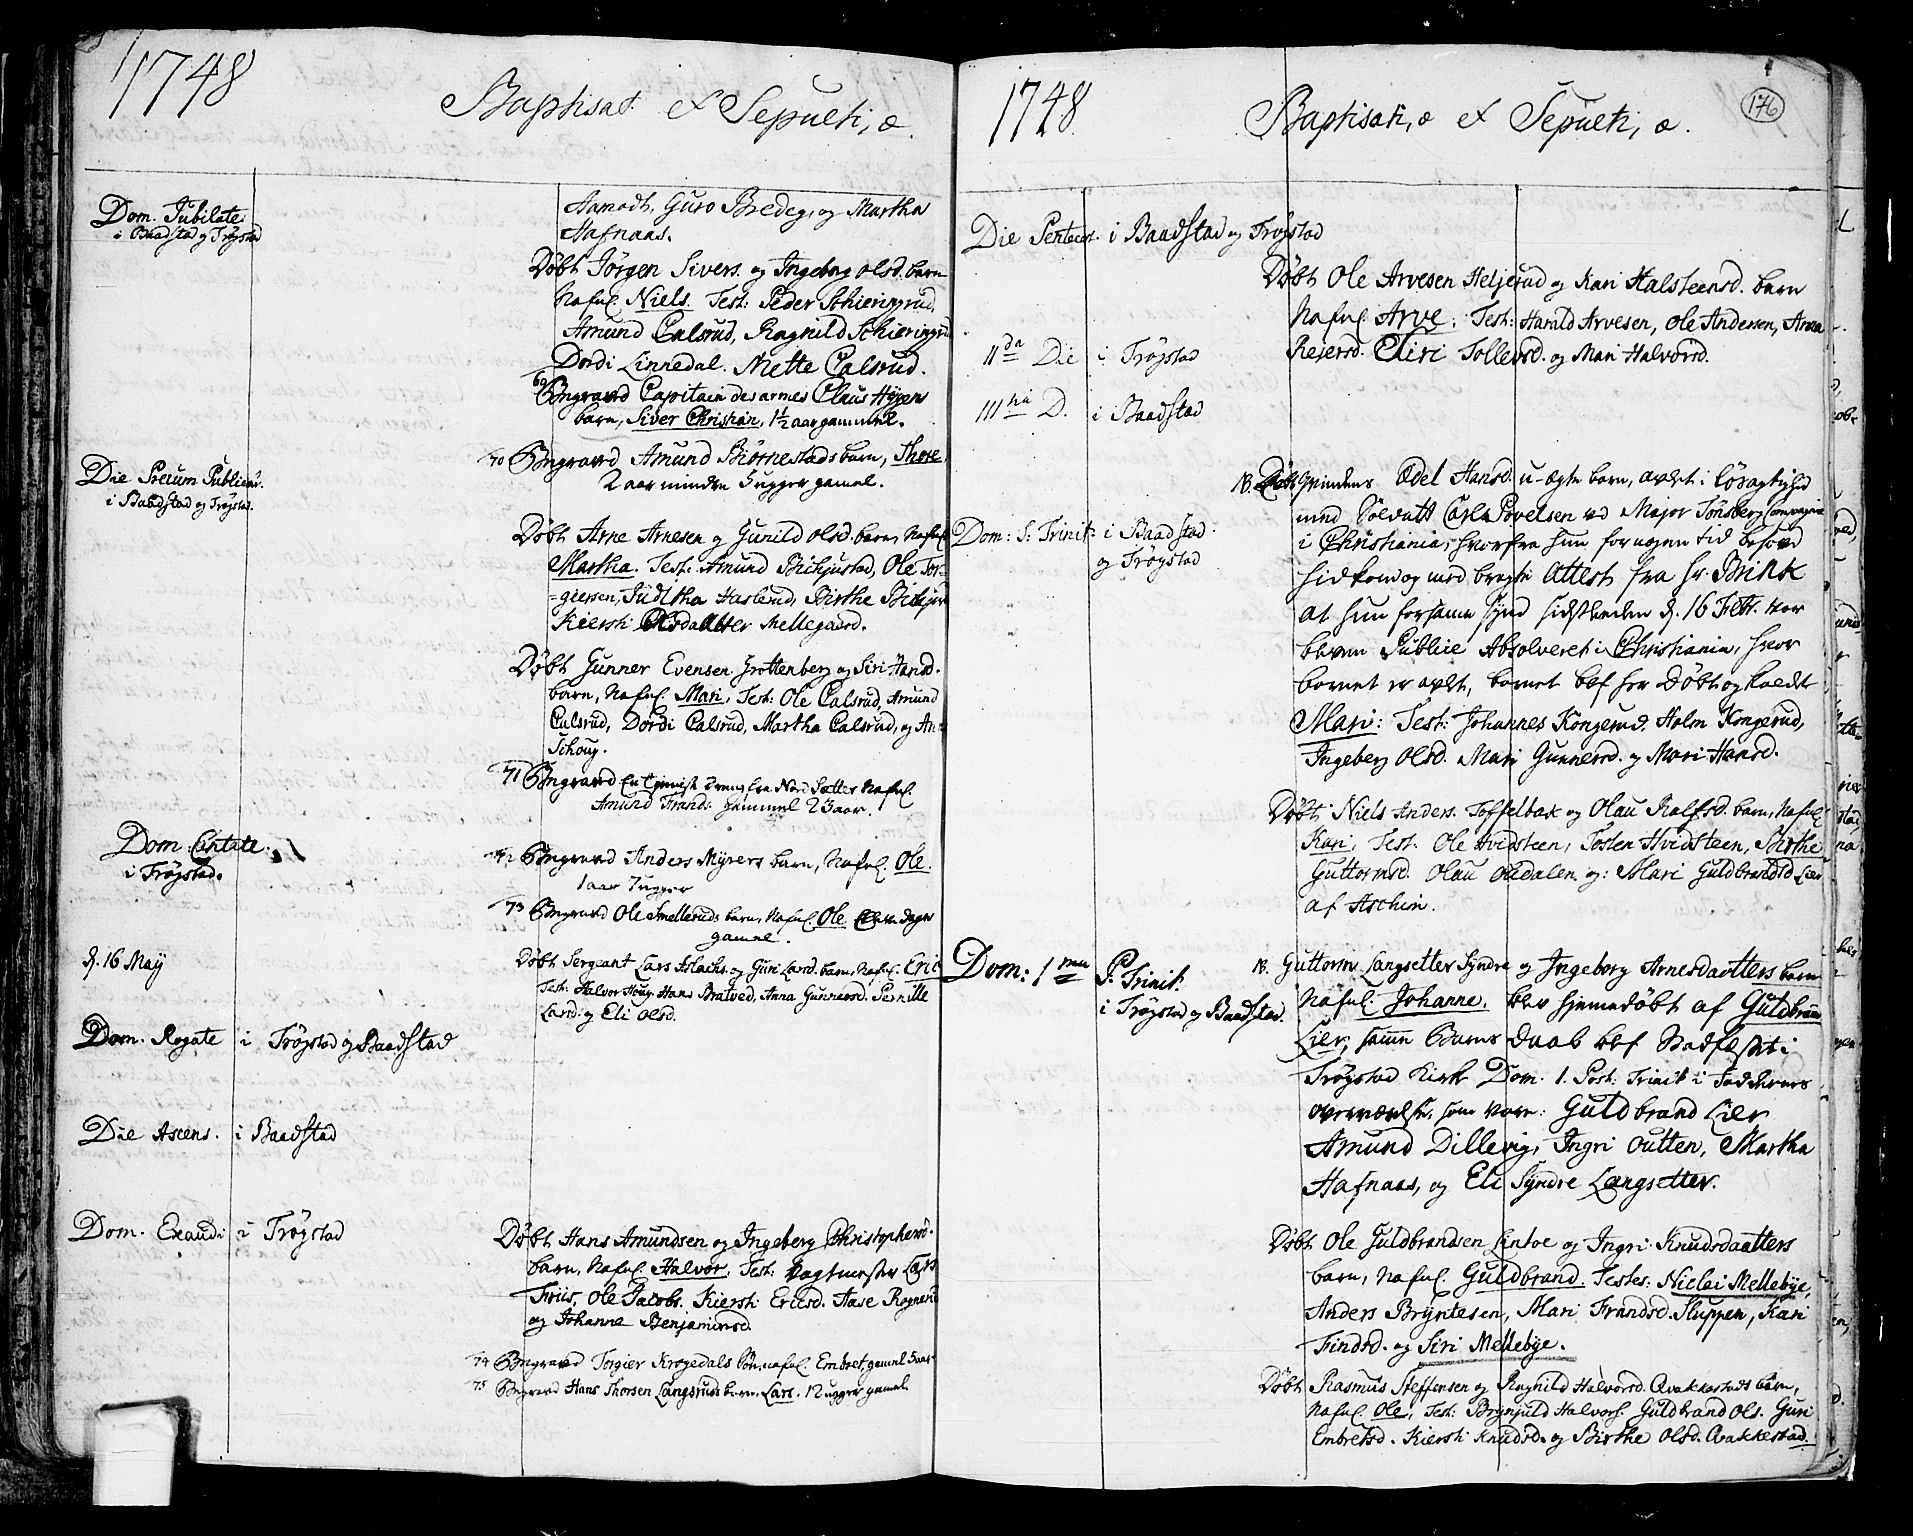 1748
Baptisat et Sepulti, æ.
Dom. Jubilate
i Baadstad og Trøgstad
Aamodt, Guro Bredeg, og Martha
Hafnaas.
Døbt Jørgen Sivers. og Ingeborg Olsd. barn
Nafnl. Niels. Test: Peder Schieringrud,
Amund Calsrud, Ragnild Schieringrud
Dordi Linnedal. Mette Calsrud.
69 Begravd Capitain des armes Claus Hyens
barn, Siver Christian, 1½ aar gammel.
70 Begravd Amund Biørnestads barn, Thore
2 aar mindre 3 uger gamel.
Die Precum Publicar.
i Baadstad og Trøgstad.
Døbt Arne Arnesen og Gunild Olsd. barn, Nafnl.
Martha. Test: Amund Bikjustad, Ole Tor-
-giersen, Juditha Haslerud, Birthe Bikjust
Kiersti Olsdaatter Mellegaard.
Døbt Gunner Evensen Grottenberg og Siri Hansd.
barn, Nafnl. Mari, Test: Ole Calsrud, Amund
Calsrud, Dordi Calsrud, Martha Calsrud, og Ant
Schoug.
71 Begravd En Qvinnsk dreng fra Nord Sætter Nafnl.
Amund Frands. gammel 23 aar.
Dom. Cantate.
i Trøgstad.
72 Begravd Anders Myrers barn, Nafnl. Ole.
1 aar 7 uger
73 Begravd Ole Smelleruds barn, Nafnl. Ole dage
gamel.
d. 16 Maij
Døbt Sergeant Lars Aslachs. og Guri Larsd. barn, Nafnl. Eric
Test: Halvor Houg, Hans Bratved, Anna Gunnersd. Pernille
Larsd. og Eli Olsd.
Dom. Rogate i Trøgstad og Baadstad
Die Ascens. i Baadstad
Dom. Exaudi i Trøgstad
Døbt Hans Amundsen og Ingeberg Christophersd.
barn, Nafnl. Halvor, Test: Vagtmester Lars
Friis, Ole Jacobs. Kiersti Ericsd. Aase Rognerud
og Johanne Benjaminsd
74 Begravd Torgier Krogedals Søn, nafnl. Embret, gamel 5 aar
75 Begravd Hans Thorsen Langsruds barn, Lars. 12 uger gamel
1748
Baptisati, æ et Sepulti, æ.
176
Die Pentecost. i Baadstad og Trøgstad
Døbt Ole Arvesen Heljerud og Kari Halsteensd. barn
Nafnl. Arve. Test: Harald Arvesen, Ole Andersen, Anna
Rejersd. Siri Tollevsd. og Mari Halvorsd.
II da Die i Trøgstad
III tia D. i Baadstad
Dom: S: Trinit: i Baadstad
og Trøgstad
NB. Døbt Qvindens Ædel Hansd. u-ægte barn, avlet i løsagtighed
med Soldatt Carl Povelsen ved Major Tønsberg Compagnie
i Christiania, hvorfra hun for nogen tid
hidkom og med bragte Attest fra Hr. Brink
at hun for samme synd sidstleden d. 16 Febr. var
bleven Publice Absolveret i Christiania, hvor
barnet er avlet, barnet blef her Døbt og kaldt
Mari: Test: Johannes Kongerud. Holm Kongerud,
Ingeberg Olsd. Mari Gunnersd. og Mari Hansd.
Døbt Niels Anders. Toffelbak og Olau Ralfsd. barn, Nafnl.
Kari, Test: Ole Hvidsteen, Tosten Hvidsteen, Birthe
Guttormsd. Olau Oudalen og: Mari Guldbrandsd Lier
af Aschim.
Dom: 1 ma P. Trinit.
i Trøgstad og Baadstad.
NB. Guttorm Langsetter Syndre og Ingeborg Arnesdaatters barn
Nafnl. Johanne, blev hjemmedøbt af Guldbrand
Lier, samme Barns Daab blef Stadfæstet i
Trøgstad Kirke Dom. 1. Post: Trinit i Faddernes
overværelse, som vare: Guldbrand Lier
Amund Dillevig, Ingri Outten, Martha
Hafnaas, og Eli Syndre Langsetter.
Døbt Ole Guldbrandsen Lintoe og Ingri Knudsdaatters
barn, nafnl. Guldbrand. Testes: Niclai Mellebye,
Anders Bryntesen, Mari Frandsd. Sluppen, Kari
Findsd. og Siri Mellebye.
Døbt Rasmus Steffensen og Ragnild Halvorsd. Qvakkestads barn,
Nafnl. Ole, Test: Brynjuld Halvors. Guldbrand Ols. Guri
Embretsd. Kiersti Knudsd. og Birthe Olsd. Qvakkestad.